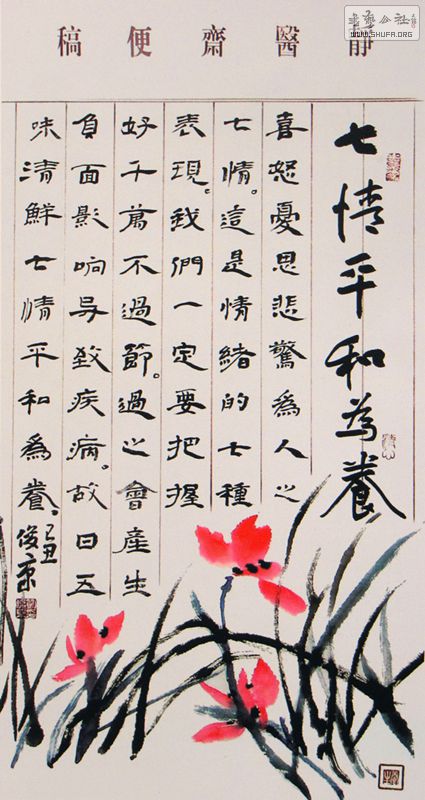 書藝公社
WWW.SHUFA.ORG
靜醫齋便稿
七情平和為養
喜怒憂思悲驚爲人之
七情。這是情緒的七種
表現。我們一定要把握
好千萬不過節。過之會產生
負面影响导致疾病。故曰五
味清鮮七情平和爲養。
己丑
俊京